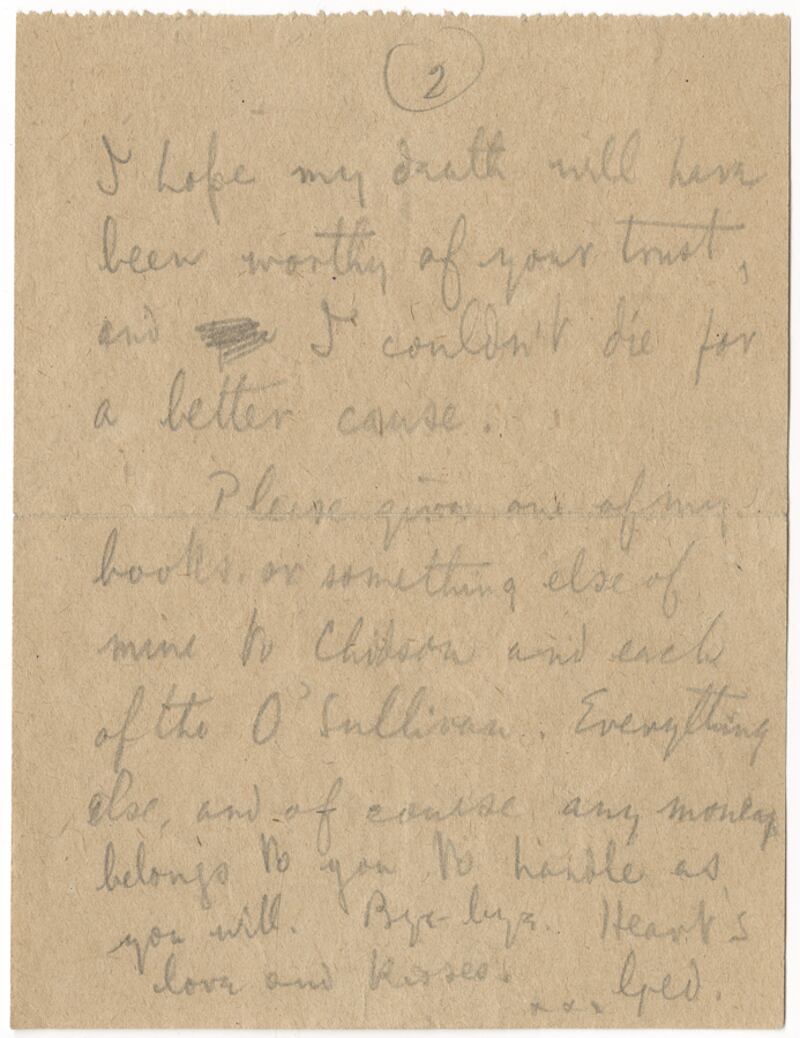 2
I hope my death will have
been worthy of your trust,
and I couldn't die for
a better cause.
Please give one of my
books or something else of
mine to Chidson and each
of the O'Sullivan. Everything
else, and of course any money
belongs to you to handle as
you will. Bye-bye. Heart's
love and kisses.
x x x Ged.